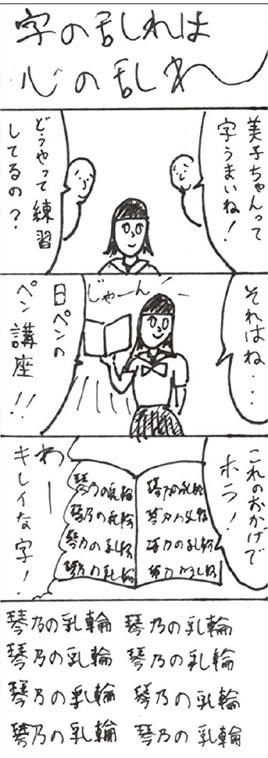 字の乱れは
心の乱れ
美子ちゃんって
字うまいね!
どうやって練習
してるの?
それはね...
じゃーん
日ペンの
ペン講座!!
これのおかげで
ホラ!
琴乃の乳輪 琴乃の乳輪
琴乃の乳輪 琴乃の乳輪
琴乃の乳輪 琴乃の乳輪
琴乃の乳輪 琴乃の乳輪
わー
キレイな字!
琴乃の乳輪 琴乃の乳輪
琴乃の乳輪 琴乃の乳輪
琴乃の乳輪 琴乃の乳輪
琴乃の乳輪 琴乃の乳輪